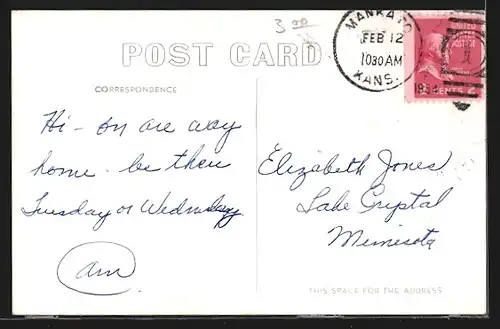 3.00
MANKATO
FEB 12
1030 AM
KANS.
UNITED
POST CARD
CENTS
CORRESPONDENCE
Hi - on are way
home - be there
Tuesday or Wednesday
am
Elizabeth Jones
Lake Crystal
Minnesota
THIS SPACE FOR THE ADDRESS